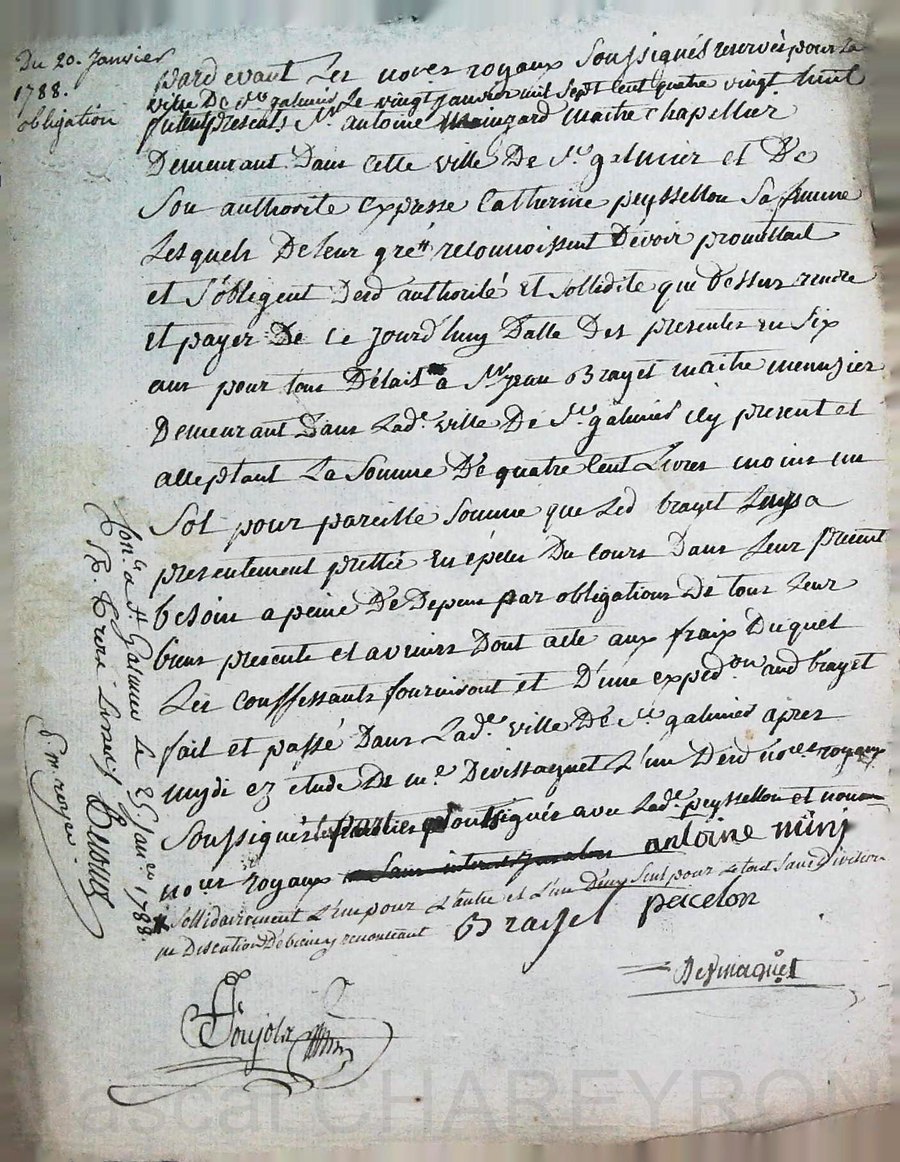 Du 20. Janvier
1788.
obligation
pardevant Les nores royaux Soussignés reservés pour La
ville De St. galmier Le vingt janvier mil sept cent quatre vingt huit
furent presents Sr. antoine maitre chapellier
Demeurant Dans cette ville De St. galmier et De
Son authorité Expresse Catherine peyssellon Sa femme
Lesquels De leur gré reconnoissent Devoir promettent
et S'obligent Desd authorité et sollidité que Dessus rendre
et payer De ce jourd'huy Datte Des presentes en Six
ans pour tous Délais a Sr. jean Brayet maitre menuzier
Demeurant Dans Lade. ville De St. galmier icy present et
acceptant La Somme De quatre Cent Livres moins un
Sol pour pareille Somme que Led brayet Leur a
presentement prettée En épeces Du cours Dans Leur present
besoin a peine De Depens par obligations De tous Leur
biens presents et avenirs Dont acte aux fraix Duquel
Les Conffessants fourniront et D'une expedon aud brayet
fait et passé Dans Lade. ville De St. galmier apres
mydi ez etude De me. L'un Desd nores royaux
Soussignés avec Lade. peyssellon et nous
nores royaux Sans interet antoine
Sollidairement L'un pour L'autre et L'un D'eux Seul pour Le tout Sans Division
ne Discution De biens y renonceant Brayet pecelon
Ponjols
Con.lé a St. Galmier Le 25 Janre. 1788.
Rt. trere
Pascal CHAREYRON